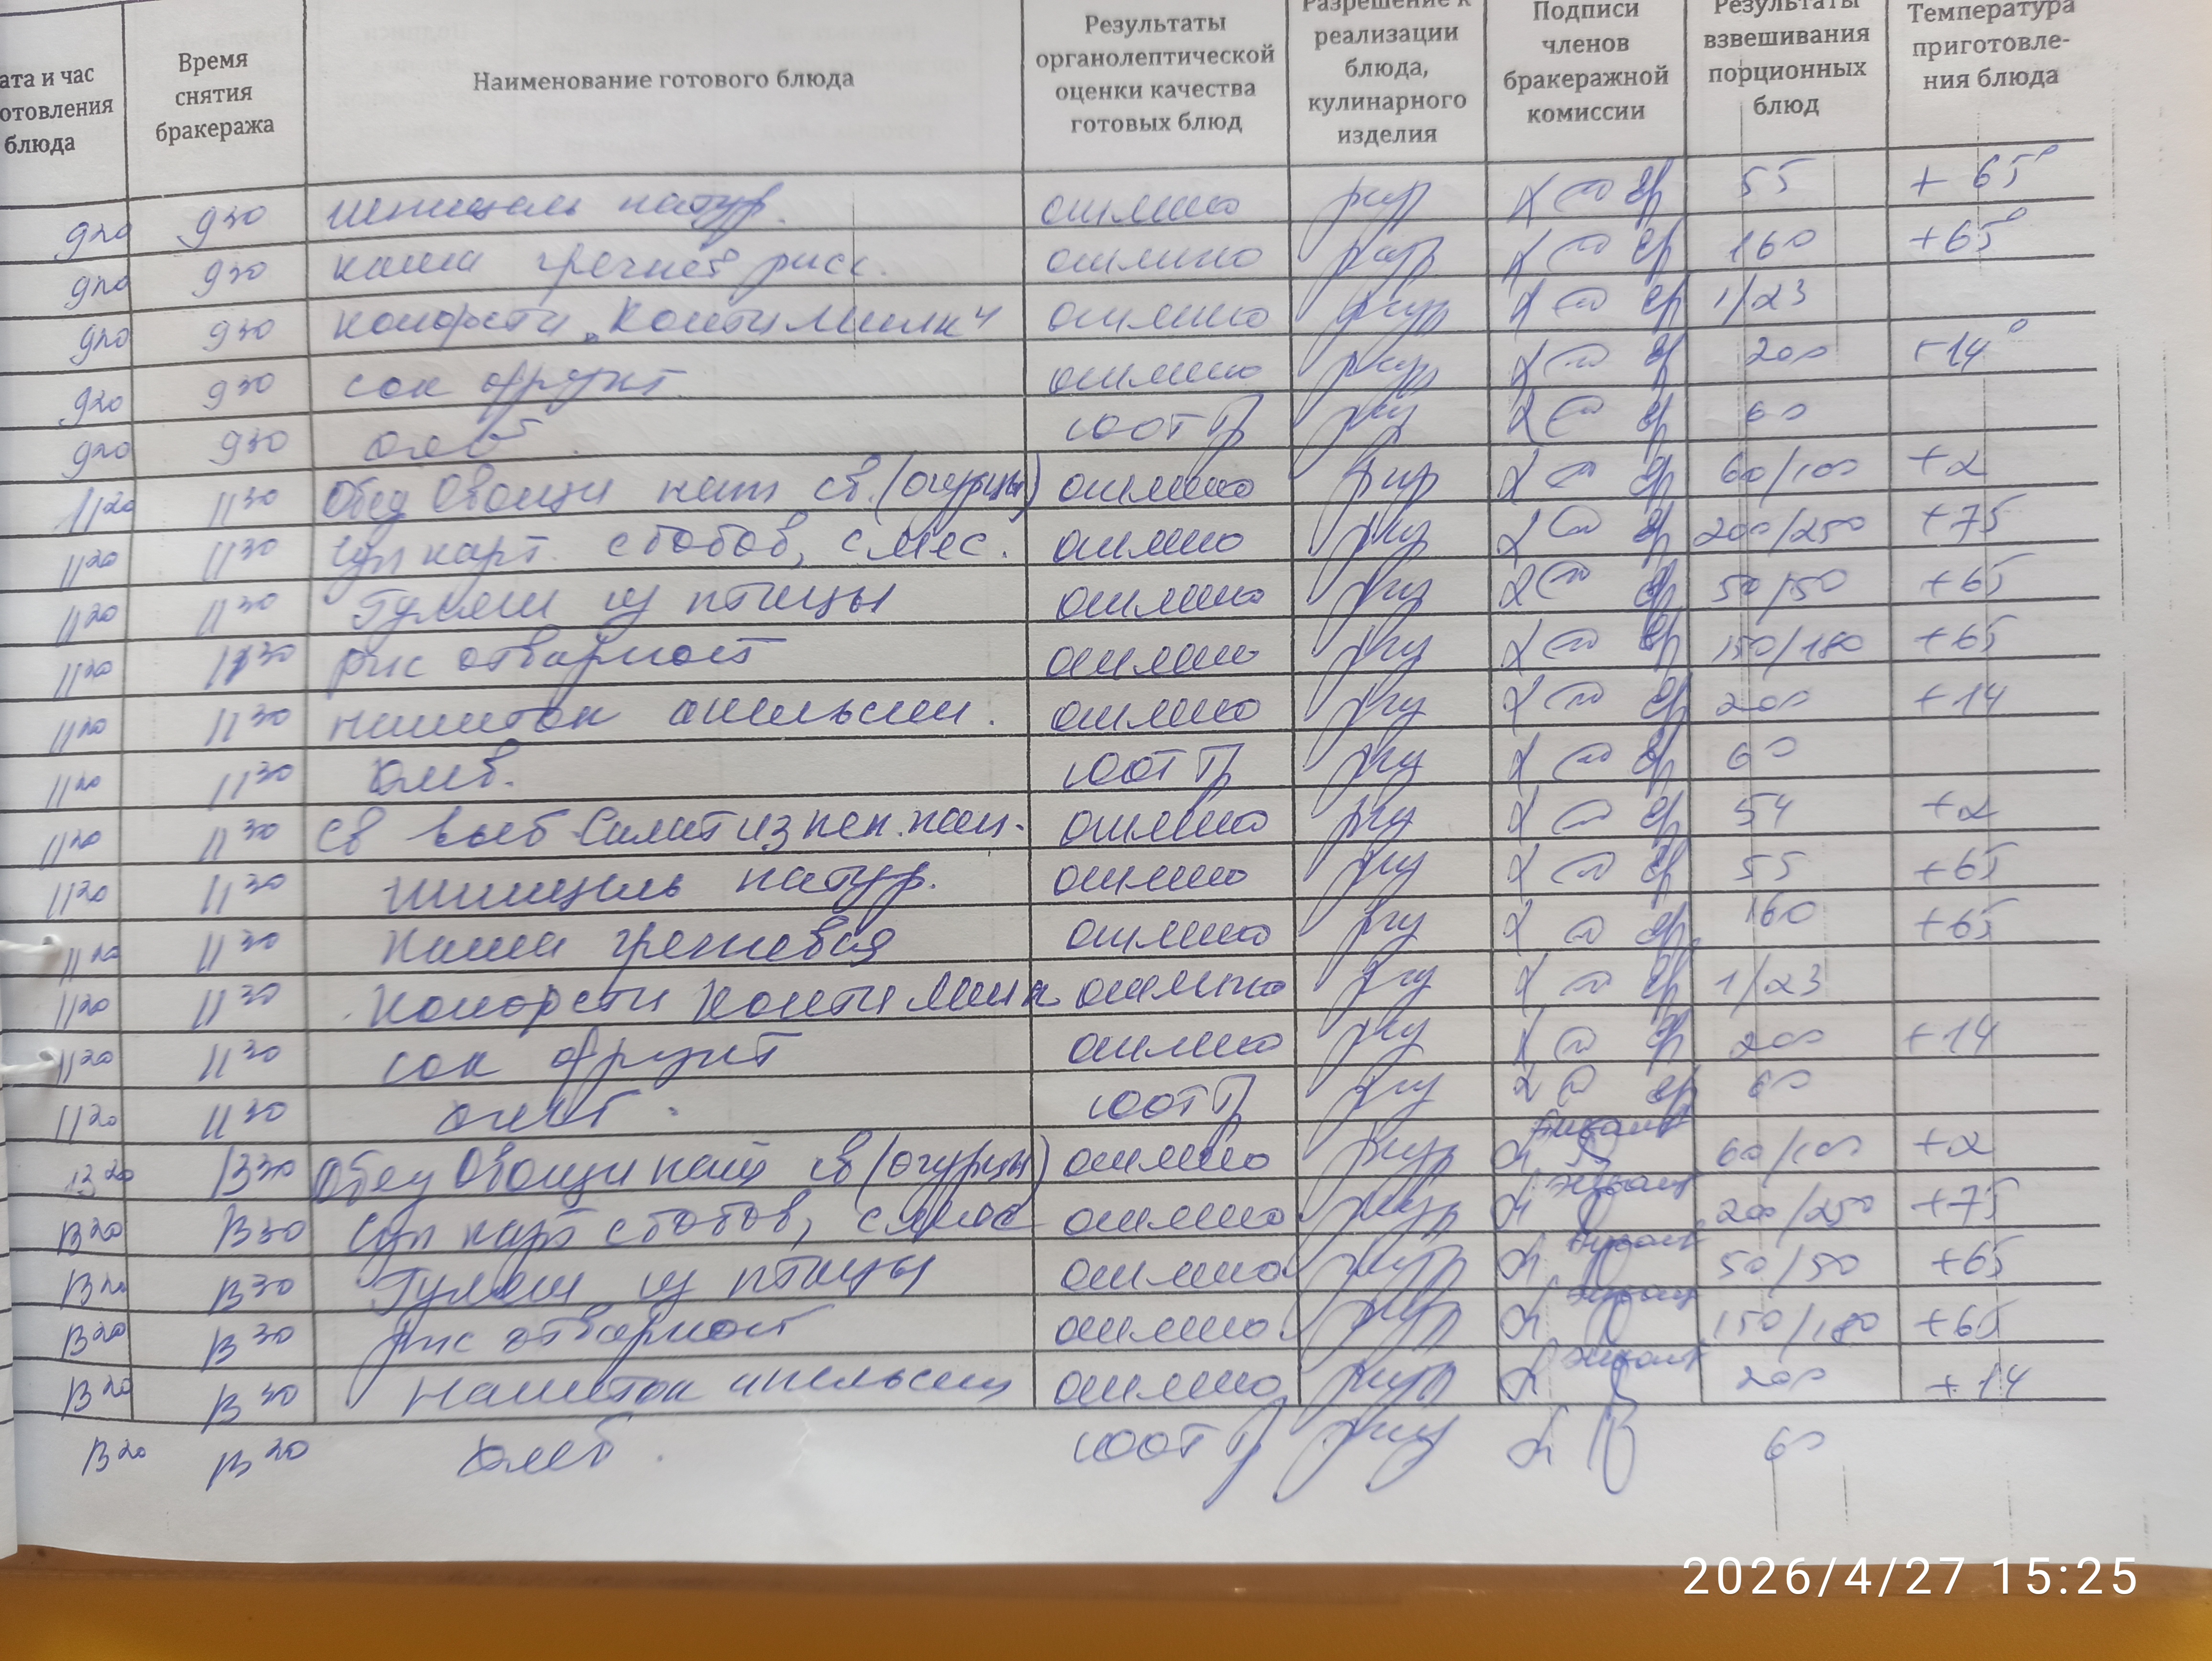 ата и час отовления блюда
Время снятия бракеража
Наименование готового блюда
Результаты органолептической оценки качества готовых блюд
Разрешение к реализации блюда, кулинарного изделия
Подписи членов бракеражной комиссии
Результаты взвешивания порционных блюд
Температура приготовле-ния блюда
9 20 9 30 шницель натур. отлично 55 +65°
9 20 9 30 каша гречнев расс. отлично 160 +65°
9 20 9 30 конфеты „Конти Милк" отлично 1/23
9 20 9 30 сок фрукт. отлично 200 +14°
9 20 9 30 хлеб. 60
11 20 11 30 Обед Овощи нат св. (огурцы) отлично 60/100 +2
11 20 11 30 Суп карт. с бобов, смес. отлично 200/250 +75
11 20 11 30 Гуляш из птицы отлично 50/50 +65
11 20 11 30 рис отварной отлично 150/180 +65
11 20 11 30 напиток апельсин. отлично 200 +14
11 20 11 30 хлеб. 60
11 20 11 30 Св Салат из пек. кап. отлично 54 +2
11 20 11 30 шницель натур. отлично 55 +65
11 20 11 30 каша гречневая отлично 160 +65
11 20 11 30 конфеты Конти Милк отлично 1/23
11 20 11 30 сок фрукт отлично 200 +14
11 20 11 30 хлеб. 60
13 20 13 30 Обед Овощи нат св (огурцы) отлично 60/100 +2
13 20 13 30 Суп карт с бобов, смес отлично 200/250 +75
13 20 13 30 Гуляш из птицы отлично 50/50 +65
13 20 13 30 рис отварной отлично 150/180 +65
13 20 13 30 напиток апельсин отлично 200 +14
13 20 13 20 хлеб. 60
2026/4/27 15:25